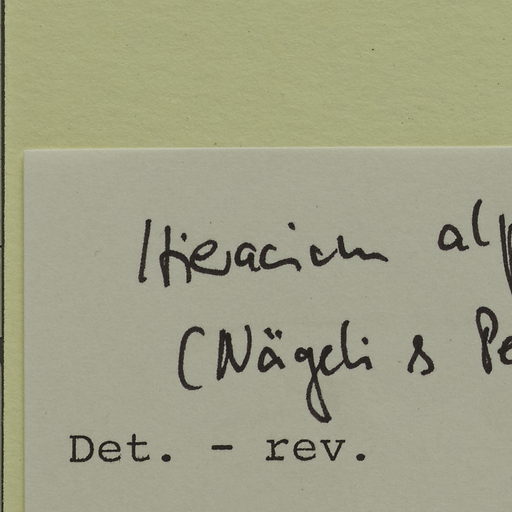 Hieracium alp
(Nägeli & Pe
Det. - rev.